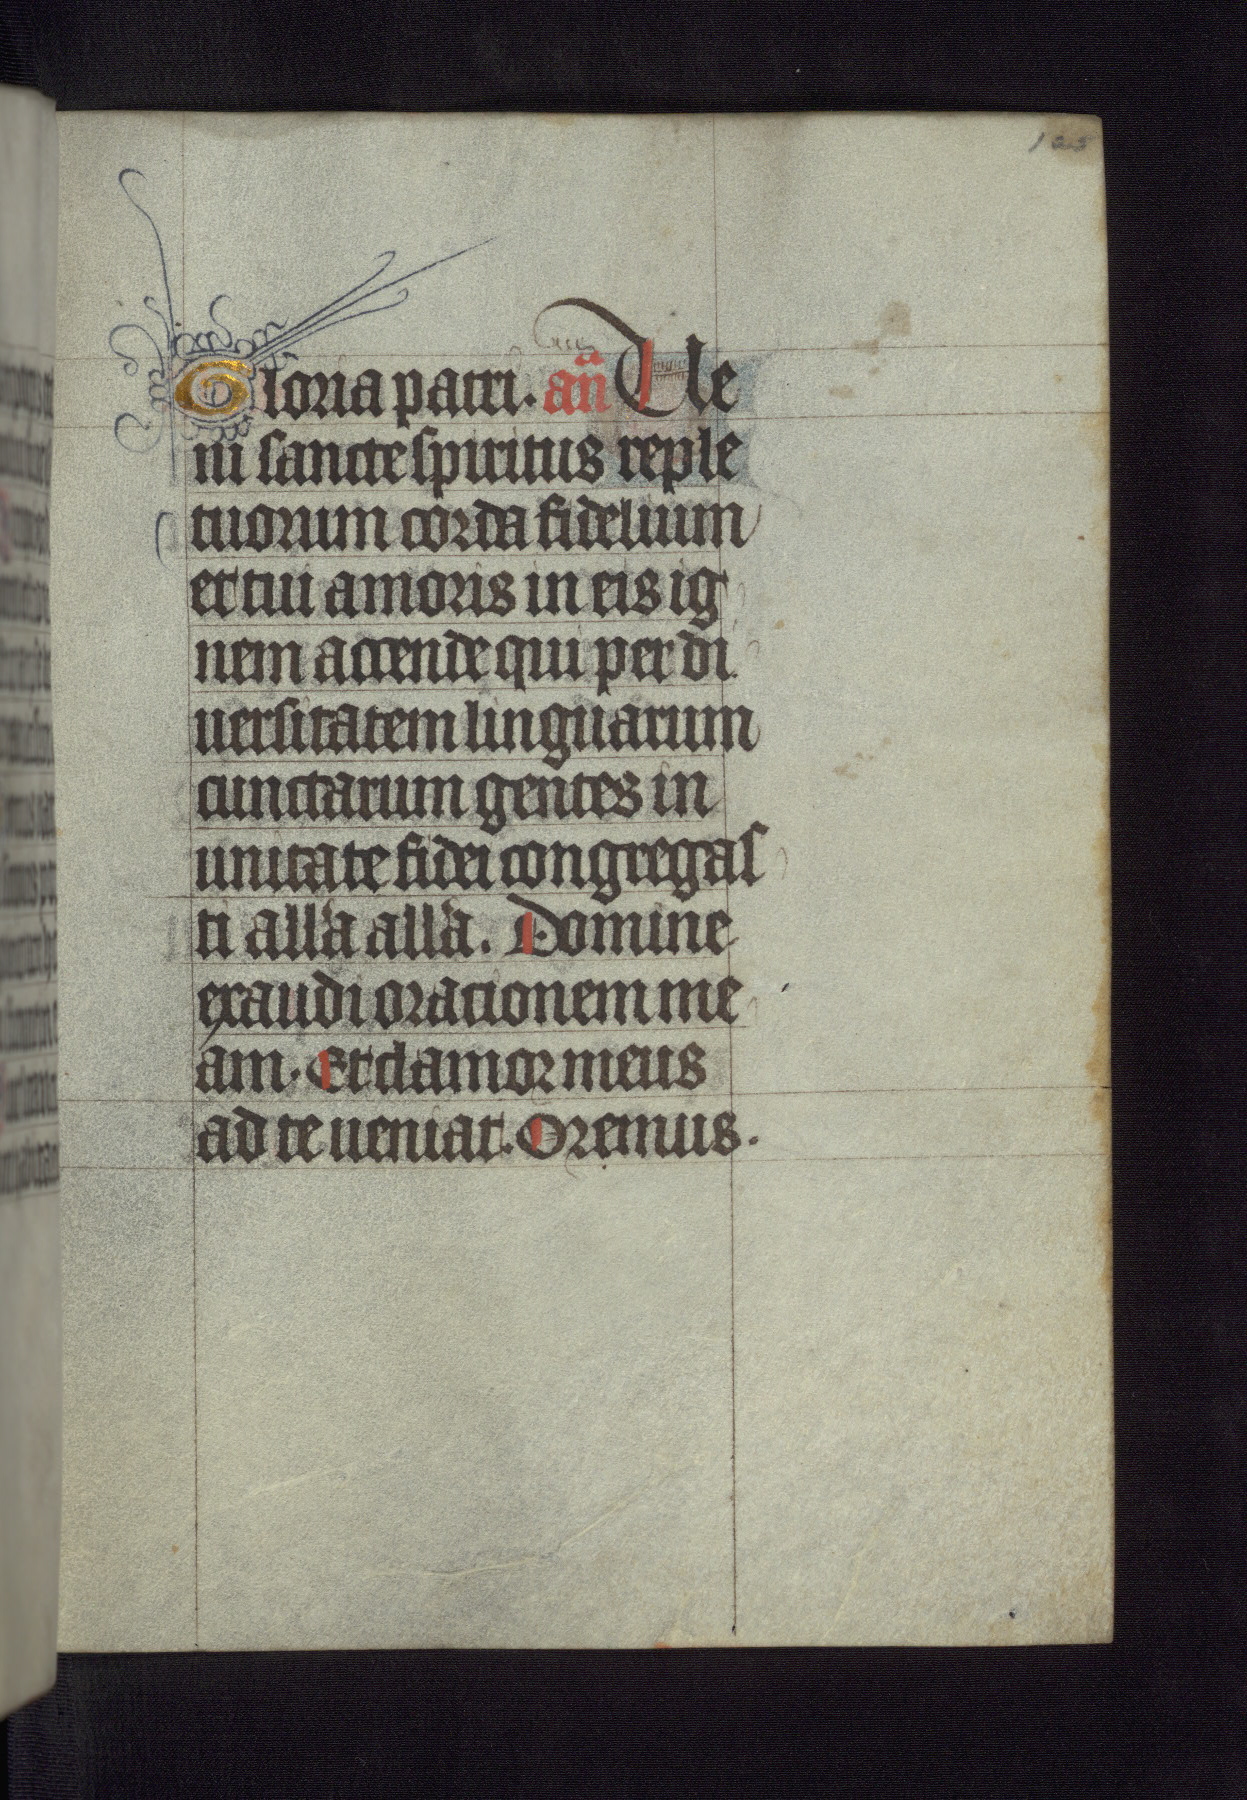 Gloria patri. añ Ue
ni sancte spiritus reple
tuorum corda fidelium
et tui amoris in eis ig
nem accende qui per di
uersitatem linguarum
cunctarum gentes in
unitate fidei congregas
ti all'a all'a. Domine
exaudi orationem me
am. Et clamor meus
ad te ueniat. Oremus.